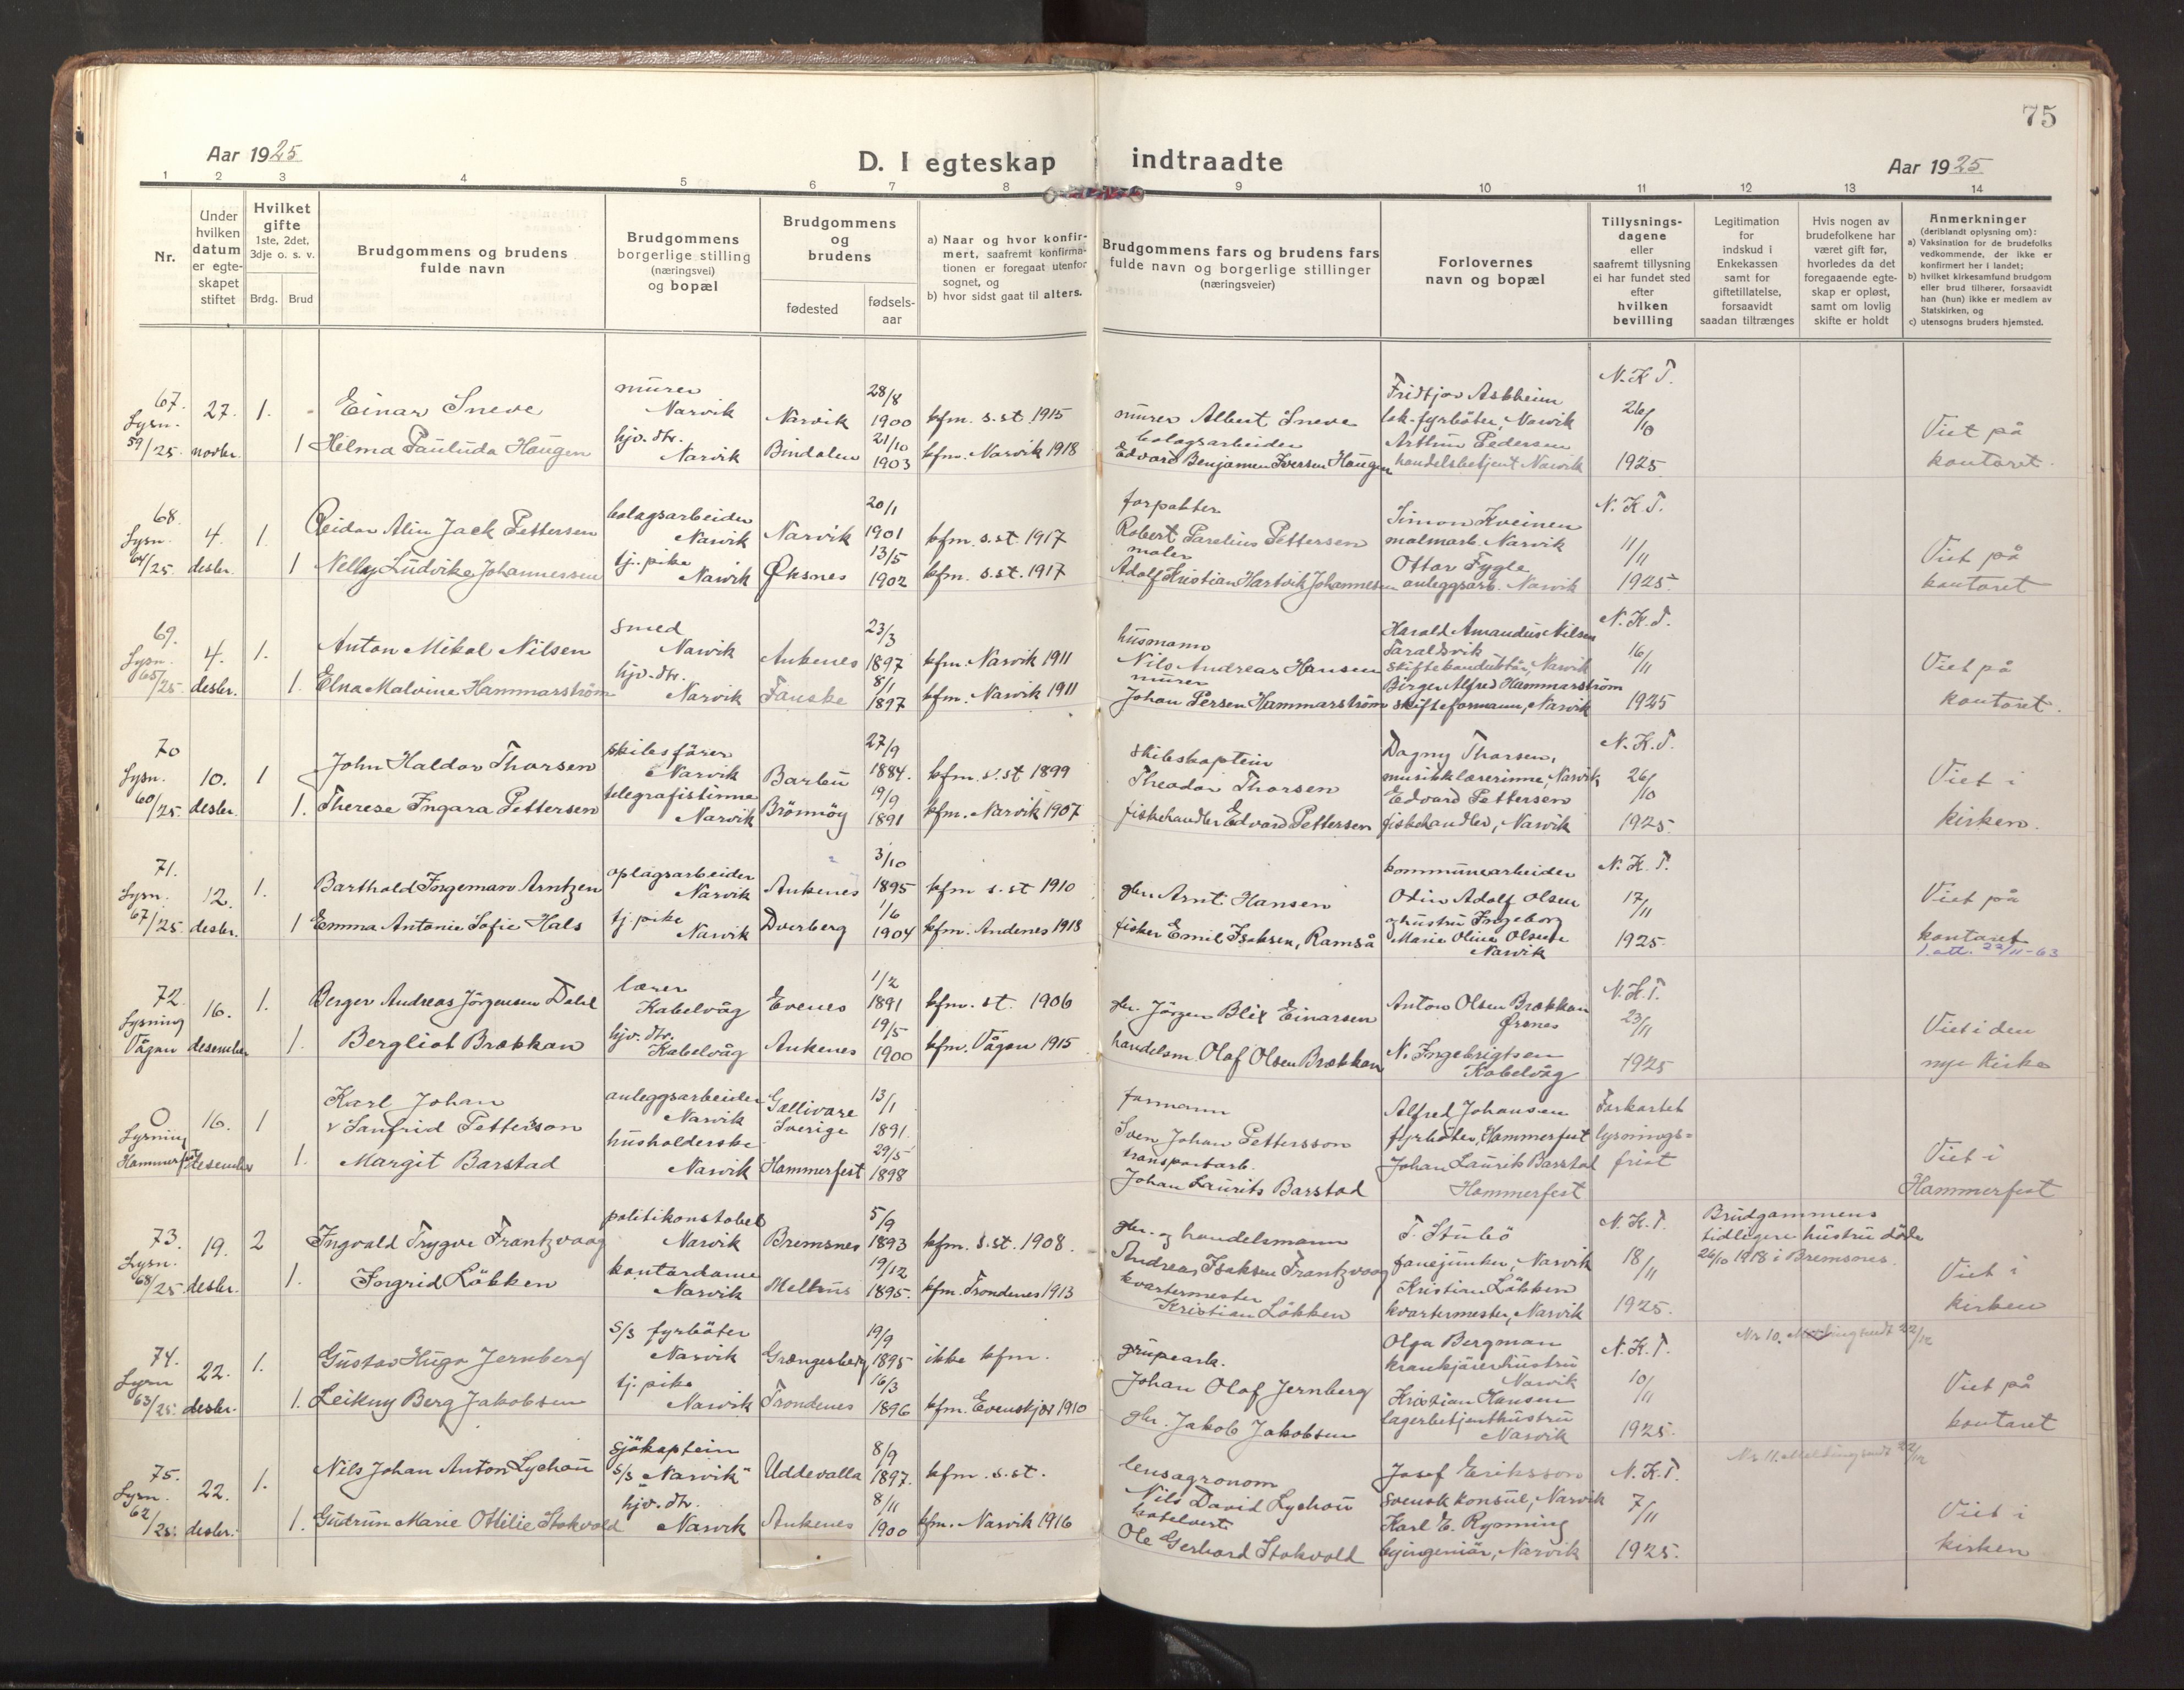 75
Aar 1925
D. I egteskap indtraadte
Aar 1925
1 2 3 4 5 6 7 8 9 10 11 12 13 14
Nr.
Under
hvilken
datum
er egte-
skapet
stiftet
Hvilket
gifte
1ste, 2det,
3dje o. s. v.
Brdg. Brud
Brudgommens og brudens
fulde navn
Brudgommens
borgerlige stilling
(næringsvei)
og bopæl
Brudgommens
og
brudens
fødested
fødsels-
aar
a) Naar og hvor konfir-
mert, saafremt konfirma-
tionen er foregaat utenfor
sognet, og
b) hvor sidst gaat til alters.
Brudgommens fars og brudens fars
fulde navn og borgerlige stillinger
(næringsveier)
Forlovernes
navn og bopæl
Tillysnings-
dagene
eller
saafremt tillysning
ei har fundet sted
efter
hvilken
bevilling
Legitimation
for
indskud i
Enkekassen
samt for
giftetillatelse,
forsaavidt
saadan tiltrænges
Hvis nogen av
brudefolkene har
været gift før,
hvorledes da det
foregaaende egte-
skap er opløst,
samt om lovlig
skifte er holdt
Anmerkninger
(deriblandt oplysning om):
a) Vaksination for de brudefolks
vedkommende, der ikke er
konfirmert her i landet;
b) hvilket kirkesamfund brudgom
eller brud tilhører, forsaavidt
han (hun) ikke er medlem av
Statskirken, og
c) utensogns bruders hjemsted.
67.
Lysn.
59/25
27.
novbr.
1.
Einar Sneve
murer
Narvik
Narvik
28/8
1900
kfm. s.st. 1915
murer Albert Sneve
Fridtjov Askheim
lok.fyrbøter, Narvik
N.K.T.
26/10
1925
Viet på
kontoret.
1 Helma Pauluda Haugen
hjv. dtr.
Narvik
Bindalen
21/10
1903
kfm. Narvik 1918
bolagsarbeider
Edvard Benjamin Iversen Haugen
Arthur Pedersen
handelsbetjent Narvik
68.
Lysn.
64/25.
4.
desbr.
1.
Reidar Alin Jack Pettersen
bolagsarbeider
Narvik
Narvik
20/1
1901
kfm. s.st. 1917
forpakter
Robert Parelius Pettersen
Simon Kveinen
malmarb. Narvik
N.K.T.
11/11
1925
Viet på
kontoret
1 Nelly Ludvike Johannessen
tj. pike
Narvik
Øksnes
13/5
1902
kfm. s.st. 1917
maler
Adolf Kristian Hartvik Johannesen
Ottar Fygle
anleggsarb. Narvik
69.
Lysn.
65/25.
4.
desbr.
1.
Anton Mikal Nilsen
smed
Narvik
Ankenes
23/3
1897
kfm. Narvik 1911
husmann
Nils Andreas Hansen
Harald Amandus Nilsen
Taraldsvik
Narvik
N.K.T.
16/11
1925
Viet på
kontoret.
1. Elna Malvine Hammarström
hjv. dtr.
Narvik
Fauske
8/1
1897
kfm. Narvik 1911
murer
Johan Persen Hammarström
Birger Alfred Hammarström
skifteformann, Narvik
70
Lysn.
60/25.
10.
desbr.
1
John Haldor Thorsen
skibsfører
Narvik
Barbu
27/9
1884.
kfm. s.st 1899
skibskaptein
Theodor Thorsen
Dagny Thorsen,
musikklærerinne, Narvik
N.K.T.
26/10
1925.
Viet i
kirken.
1. Therese Ingara Pettersen
telegrafistinne
Narvik
Brönnöy
19/9
1891
kfm. Narvik 1907
fiskehandler Edvard Pettersen
Edvard Pettersen
fiskehandler, Narvik
71.
Lysn.
67/25.
12.
desbr.
1.
Barthold Ingeman Arntzen
oplagsarbeider
Narvik
Ankenes
3/10
1895
kfm s.st 1910
gbr. Arnt Hansen
kommunearbeider
Odin Adolf Olsen
og hustru Ingeborg
Marie Oline Olsen
Narvik
N.K.T.
17/11
1925.
Viet på
kontoret
1.att. 22/11-63
1 Emma Antonie Sofie Hals
tj. pike
Narvik
Dverberg
1/6
1904
kfm. Andenes 1918
fisker Emil Isaksen, Ramså
72.
Lysning
Vågan
16.
desember
1.
Berger Andreas Jörgensen Dahl
lærer
Kabelvåg
Evenes
1/2
1891
kfm. st. 1906
gbr. Jörgen Blix Einarsen
Anton Olsen Brækkan
Ørsnes
N.K.T.
23/11
1925
Viet i den
nye kirke
1. Bergliot Brækkan
hjv. dtr.
Kabelvåg
Ankenes
19/5
1900
kfm. Vågan 1915
handelsm. Olaf Olsen Brækkan
N. Ingebrigtsen
Kabelvåg
0
Lysning
Hammerfest
16.
desember
1
Karl Johan
v Sanfrid Petterson
anleggsarbeider
Narvik
Gællivare
Sverige
13/1
1891.
formann
Sven Johan Pettersson
Alfred Johansen
fyrbøter, Hammerfest
Forkortet
lysnings=
frist
Viet i
Hammerfest
1. Margit Barstad
husholderske
Narvik
Hammerfest
29/5
1898
transportarb.
Johan Laurits Barstad
Johan Laurits Barstad
Hammerfest
73.
Lysn.
68/25
19.
desbr.
2
Ingvald Trygve Frantzvaag
politikonstabel
Narvik
Bremsnes
5/9
1893
kfm. s.st. 1908.
gbr. og handelsmann
Andreas Isaksen Frantzvaag
T. Stubö
fanejunker, Narvik
N.K.T.
18/11
1925.
Brudgommens
tidligere hustru döde
26/10 1918 i Bremsnes.
Viet i
kirken
1. Ingrid Lökken
kontordame
Narvik
Melhus
19/12
1895.
kfm. Trondenes 1913
kvartermester
Kristian Lökken
Kristian Lökken
kvartermester, Narvik
74.
Lysn
63/25.
22.
desbr.
1.
Gustav Hugo Jernberg
S/S fyrbøter
Narvik
Grængesberg
19/9
1895
ikke kfm.
grupeark.
Johan Olof Jernberg
Olga Bergman
hustru
Narvik
N.K.T.
10/11
1925.
Nr 10. Melding sendt 22/12
Viet på
kontoret
1. Leikny Berg Jakobsen
tj. pike
Narvik
Trondenes
16/3
1896
kfm. Evenskjer 1910
gbr. Jakob Jakobsen
Kristian Hansen
lagerbetjenthustru
Narvik
75.
Lysn.
62/25.
22.
desbr.
1.
Nils Johan Anton Lychou
sjökaptein
S/S "Narvik"
Uddevalla
8/9
1897.
kfm. s.st.
lensagronom
Nils David Lychou
Josef Eriksson
svensk konsul, Narvik
N.K.T.
7/11
1925.
Nr 11. Melding sendt 22/12
Viet i
kirken
1. Gudrun Marie Ottilie Stokvold
hjv. dtr.
Narvik
Ankenes
8/11
1900
kfm. Narvik 1916
hotelvert
Ole Gerhard Stokvold
Karl E. Rynning
byingeniør, Narvik